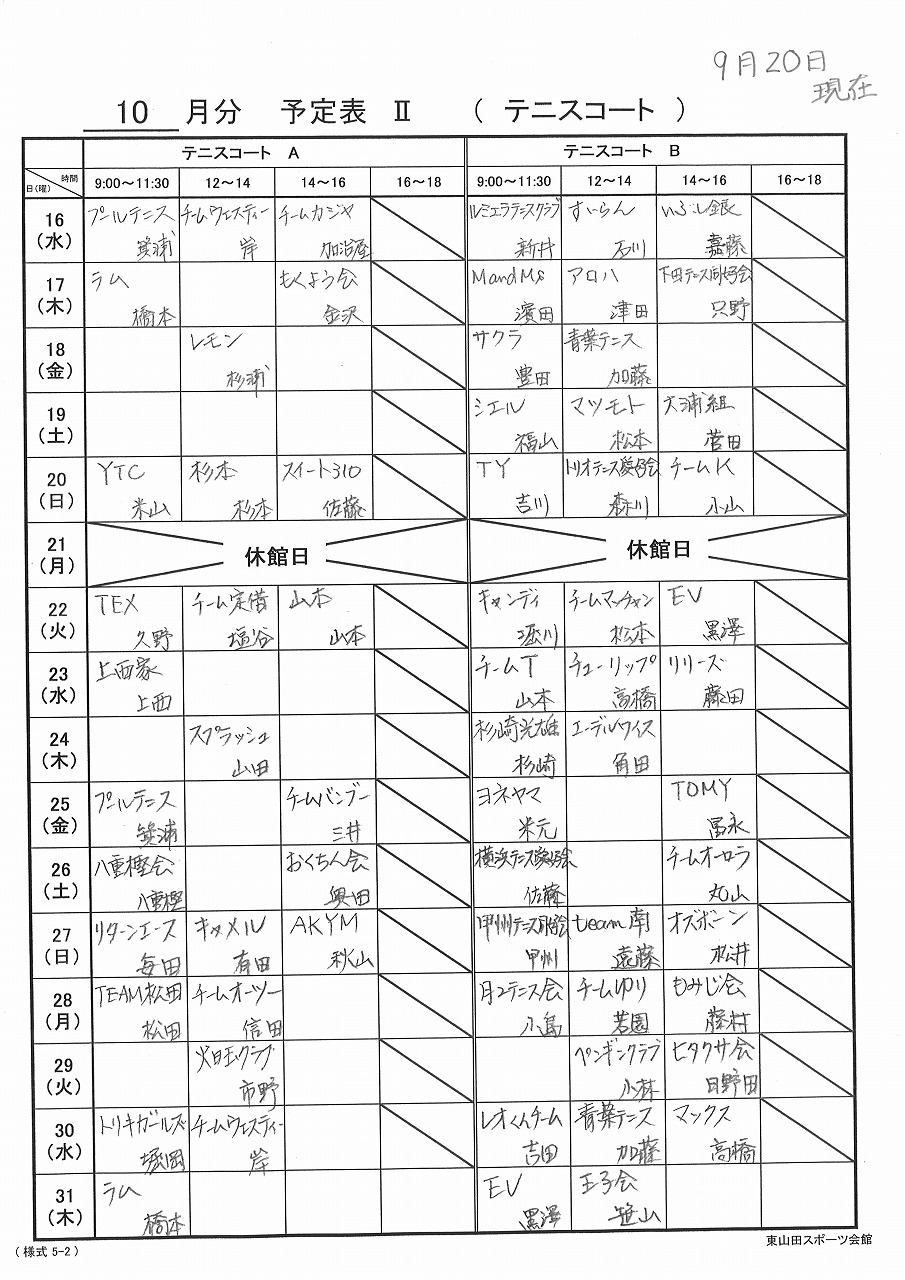 9月20日
現在
10 月分 予定表 Ⅱ ( テニスコート )
テニスコート A テニスコート B
時間
日(曜) 9:00～11:30 12～14 14～16 16～18 9:00～11:30 12～14 14～16 16～18
16 プールテニス チームウェスティー チームカジヤ ルミエラテニスクラブ すいらん いぶし銀
(水) 箕浦 岸 加治屋 新井 石川 嘉藤
17 ラム もくよう会 MandMs アロハ 下田テニス同好会
(木) 橋本 金沢 濱田 津田 只野
18 レモン サクラ 青葉テニス
(金) 杉浦 豊田 加藤
19 シエル マツモト 大浦組
(土) 福山 松本 菅田
20 YTC 杉本 スイート310 TY トリオテニス愛好会 チームK
(日) 米山 杉本 佐藤 吉川 森川 小山
21
(月) 休館日 休館日
22 TEX チーム定借 山本 キャンディ チームマッチャン EV
(火) 久野 塩谷 山本 深川 松本 黒澤
23 上西家 チームT チューリップ リリーズ
(水) 上西 山本 高橋 藤田
24 スプラッシュ 杉崎光雄 エーデルワイス
(木) 山田 杉崎 角田
25 プールテニス チームバンブー ヨネヤマ TOMY
(金) 箕浦 三井 米元 冨永
26 八重樫会 おくちん会 横浜テニス愛好会 チームオーロラ
(土) 八重樫 奥田 佐藤 丸山
27 リターンエース キャメル AKYM 甲州テニス同好会 team南 オズボーン
(日) 毎田 有田 秋山 甲州 遠藤 松井
28 TEAM松田 チームオーツー 月2テニス会 チームゆり もみじ会
(月) 松田 信田 小島 若園 藤村
29 火日玉クラブ ペンギンクラブ ヒタクサ会
(火) 市野 小林 日野田
30 トリキガールズ チームウェスティー レオくんチーム 青葉テニス マックス
(水) 堀岡 岸 吉田 加藤 高橋
31 ラム EV 王子会
(木) 橋本 黒澤 笹山
(様式 5-2) 東山田スポーツ会館